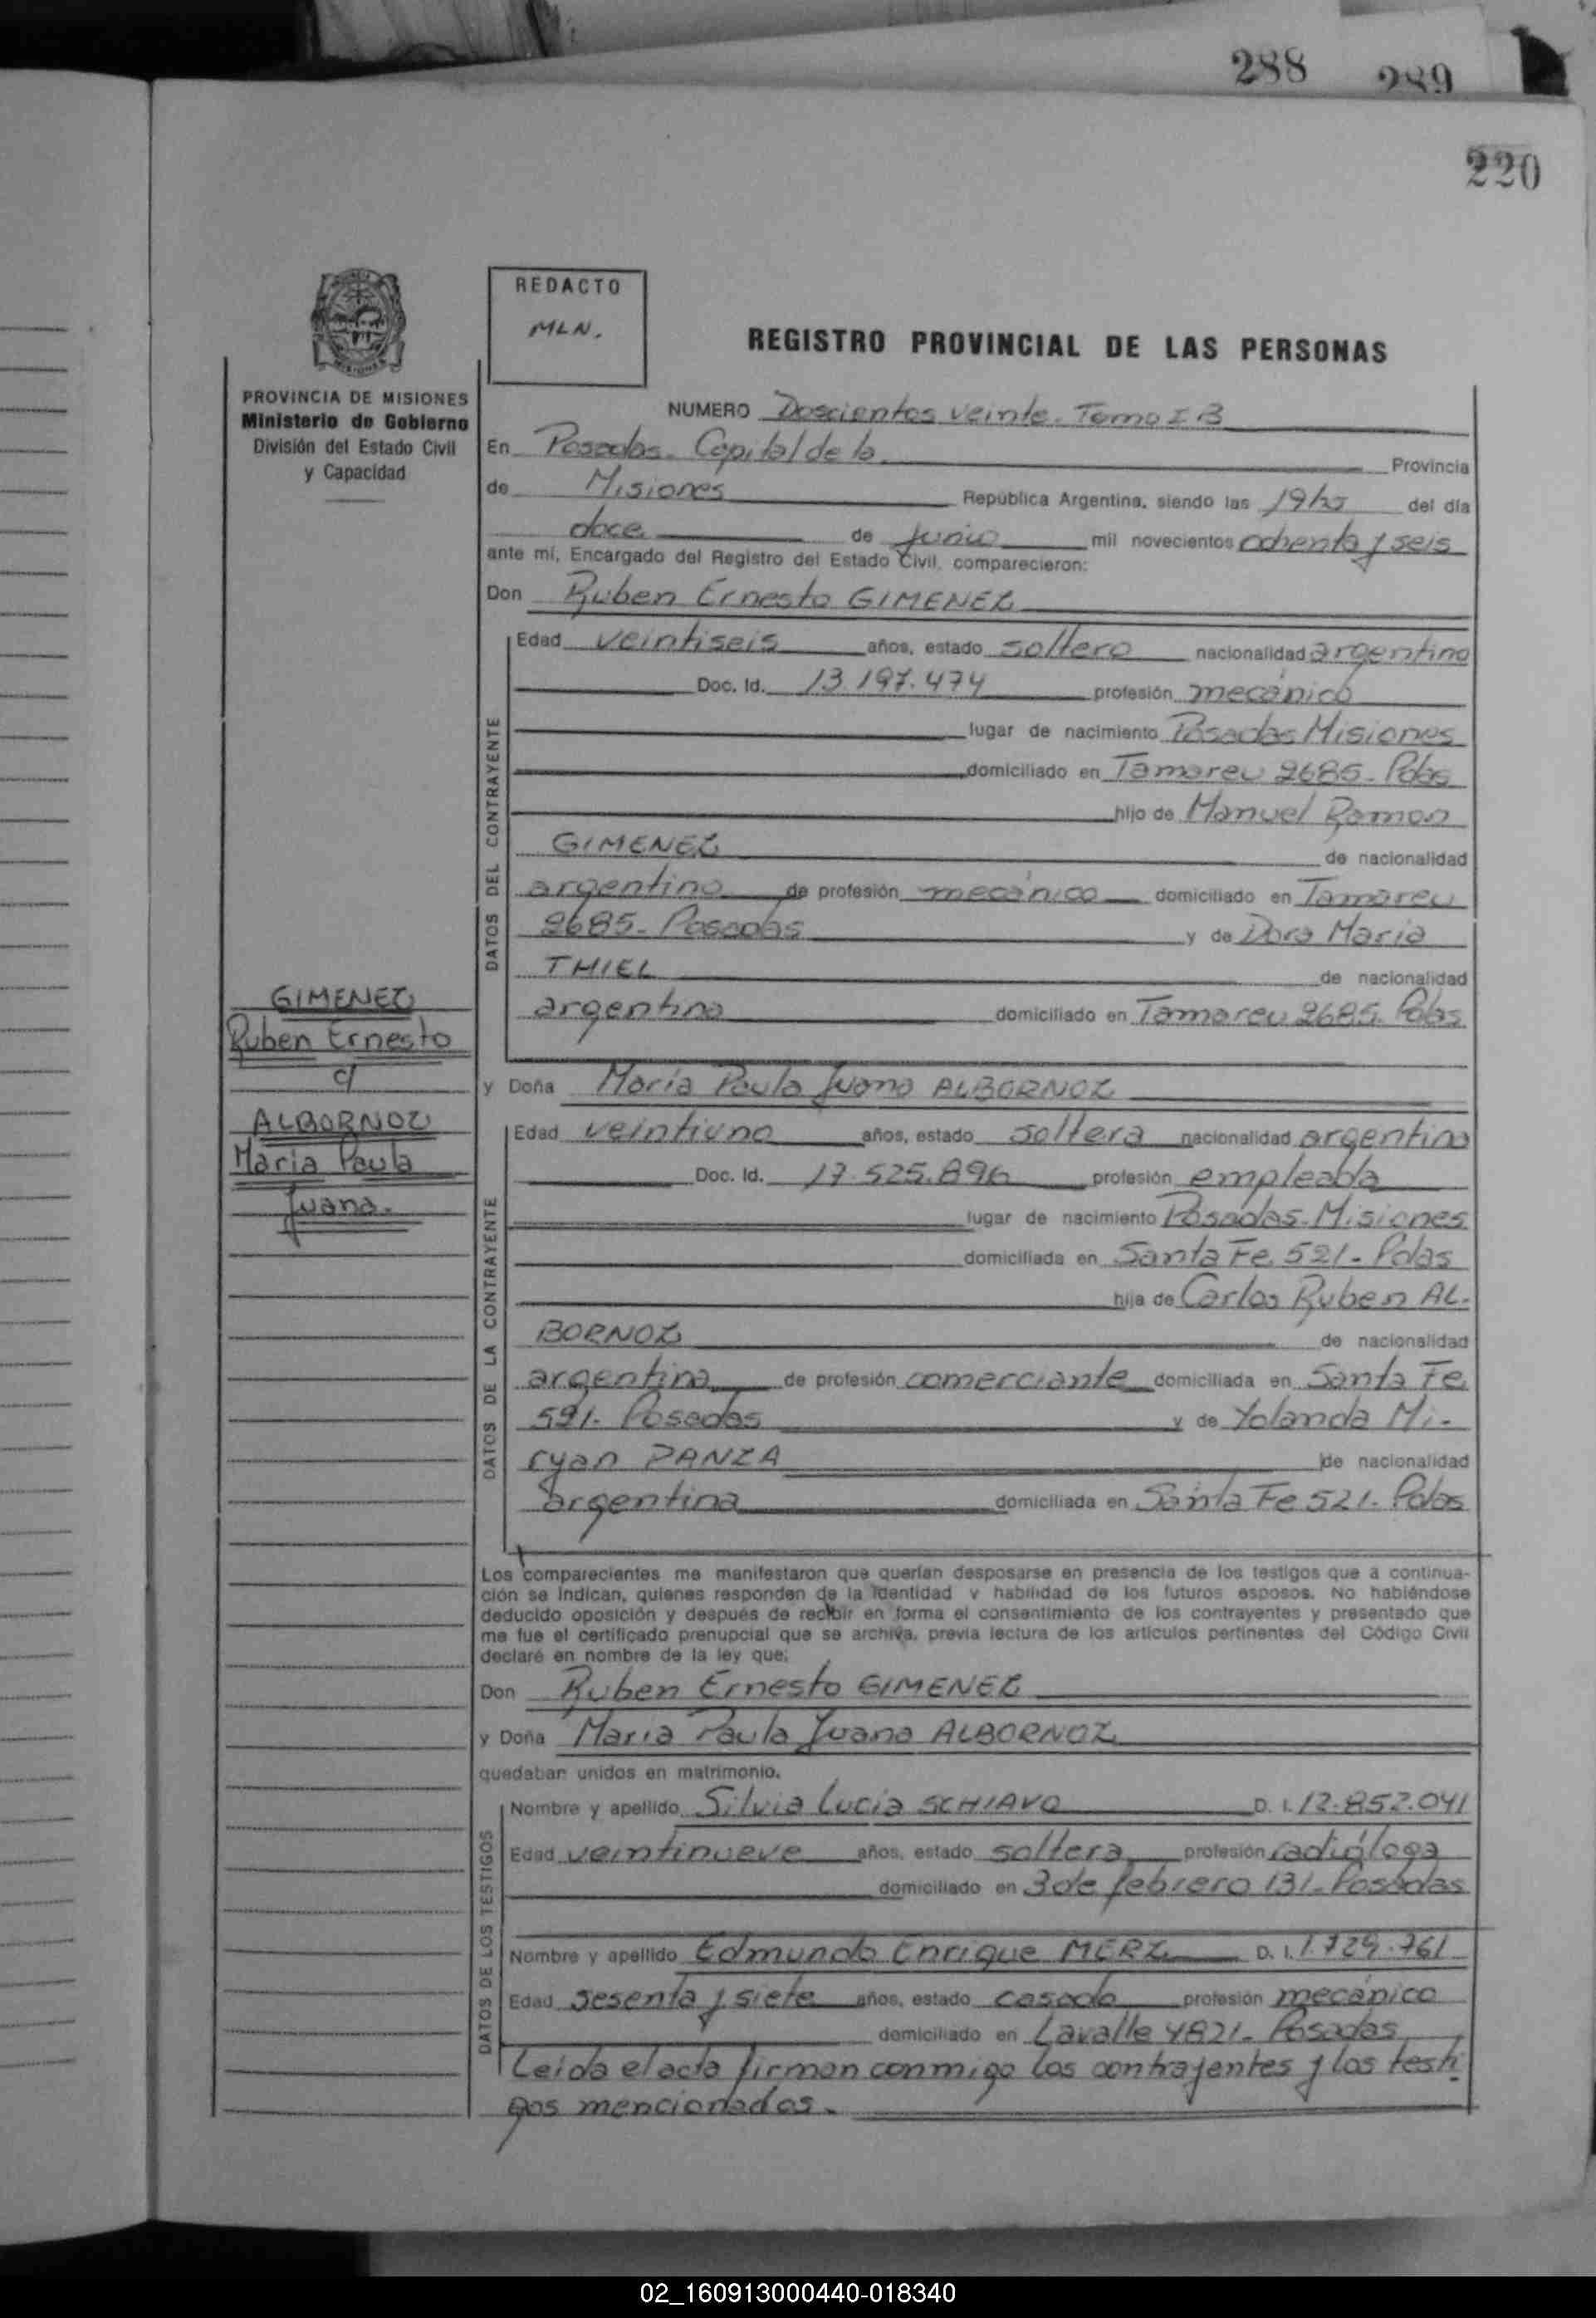 288 289
220
REDACTO
MLN.
REGISTRO PROVINCIAL DE LAS PERSONAS
PROVINCIA DE MISIONES
Ministerio de Gobierno
División del Estado Civil
y Capacidad
NUMERO Doscientos veinte. Tomo I B
En Posadas. Capital de la Provincia
de Misiones República Argentina, siendo las 19 hs del día
doce de junio mil novecientos ochenta y seis
ante mí, Encargado del Registro del Estado Civil, comparecieron:
Don Ruben Ernesto GIMENEZ
DATOS DEL CONTRAYENTE
Edad veintiseis años, estado soltero nacionalidad argentino
Doc. Id. 13.197.474 profesión mecánico
lugar de nacimiento Posadas Misiones
domiciliado en Tamareu 2685. Pdas
hijo de Manuel Ramon
GIMENEZ de nacionalidad
argentino de profesión mecánico domiciliado en Tamareu
2685. Posadas y de Dora Maria
THIEL de nacionalidad
argentina domiciliado en Tamareu 2685. Pdas
GIMENEZ
Ruben Ernesto
c/
ALBORNOZ
Maria Paula
Juana.
y Doña María Paula Juana ALBORNOZ
DATOS DE LA CONTRAYENTE
Edad veintiuno años, estado soltera nacionalidad argentina
Doc. Id. 17.525.896 profesión empleada
lugar de nacimiento Posadas-Misiones
domiciliada en Santa Fe. 521. Pdas
hija de Carlos Ruben AL-
BORNOZ de nacionalidad
argentina de profesión comerciante domiciliada en Santa Fe
521. Posadas y de Yolanda Mi-
ryan PANZA de nacionalidad
argentina domiciliada en Santa Fe 521. Pdas
Los comparecientes me manifestaron que querían desposarse en presencia de los testigos que a continua-
ción se indican, quienes responden de la identidad y habilidad de los futuros esposos. No habiéndose
deducido oposición y después de recibir en forma el consentimiento de los contrayentes y presentado que
me fue el certificado prenupcial que se archiva, previa lectura de los artículos pertinentes del Código Civil
declaré en nombre de la ley que:
Don Ruben Ernesto GIMENEZ
y Doña Maria Paula Juana ALBORNOZ
quedaban unidos en matrimonio.
DATOS DE LOS TESTIGOS
Nombre y apellido Silvia Lucía SCHIAVO D. I. 12.852.041
Edad veintinueve años, estado soltera profesión radióloga
domiciliado en 3 de febrero 131. Posadas
Nombre y apellido Edmundo Enrique MERZ D. I. 1.729.761
Edad sesenta y siete años, estado casado profesión mecánico
domiciliado en Lavalle 4821. Posadas
Leída el acta firman conmigo los contrayentes y los testi-
gos mencionados.
02_160913000440-018340